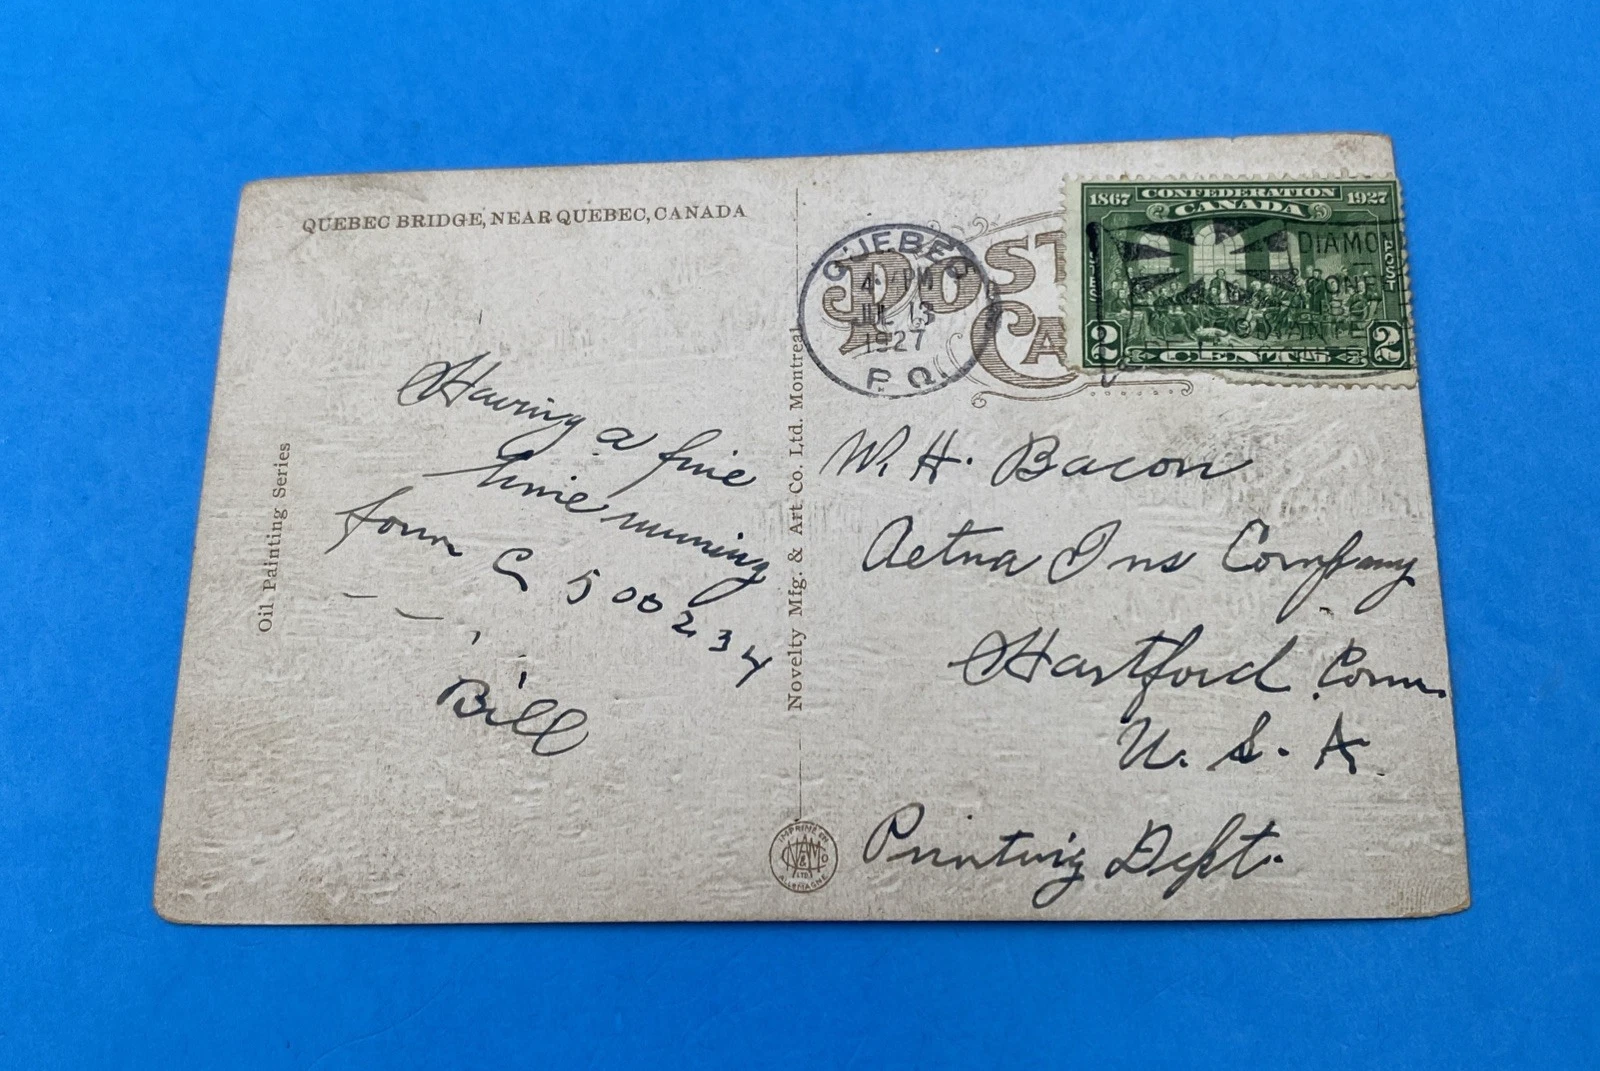 QUEBEC BRIDGE, NEAR QUEBEC, CANADA
Oil Painting Series
Having a fine
time running
form C 500234
Bill
Novelty Mfg. & Art Co. Ltd. Montreal
IMPRIMÉ EN
LTD.
ALLEMAGNE
POST
CA
QUEBEC
4 PM
JUL 13
1927
P. Q.
1867 CONFEDERATION 1927
CANADA
POST
2 CENTS 2
DIAMO
CONF
W. H. Bacon
Aetna Ins Company
Hartford Conn.
U. S. A.
Printing Dept.